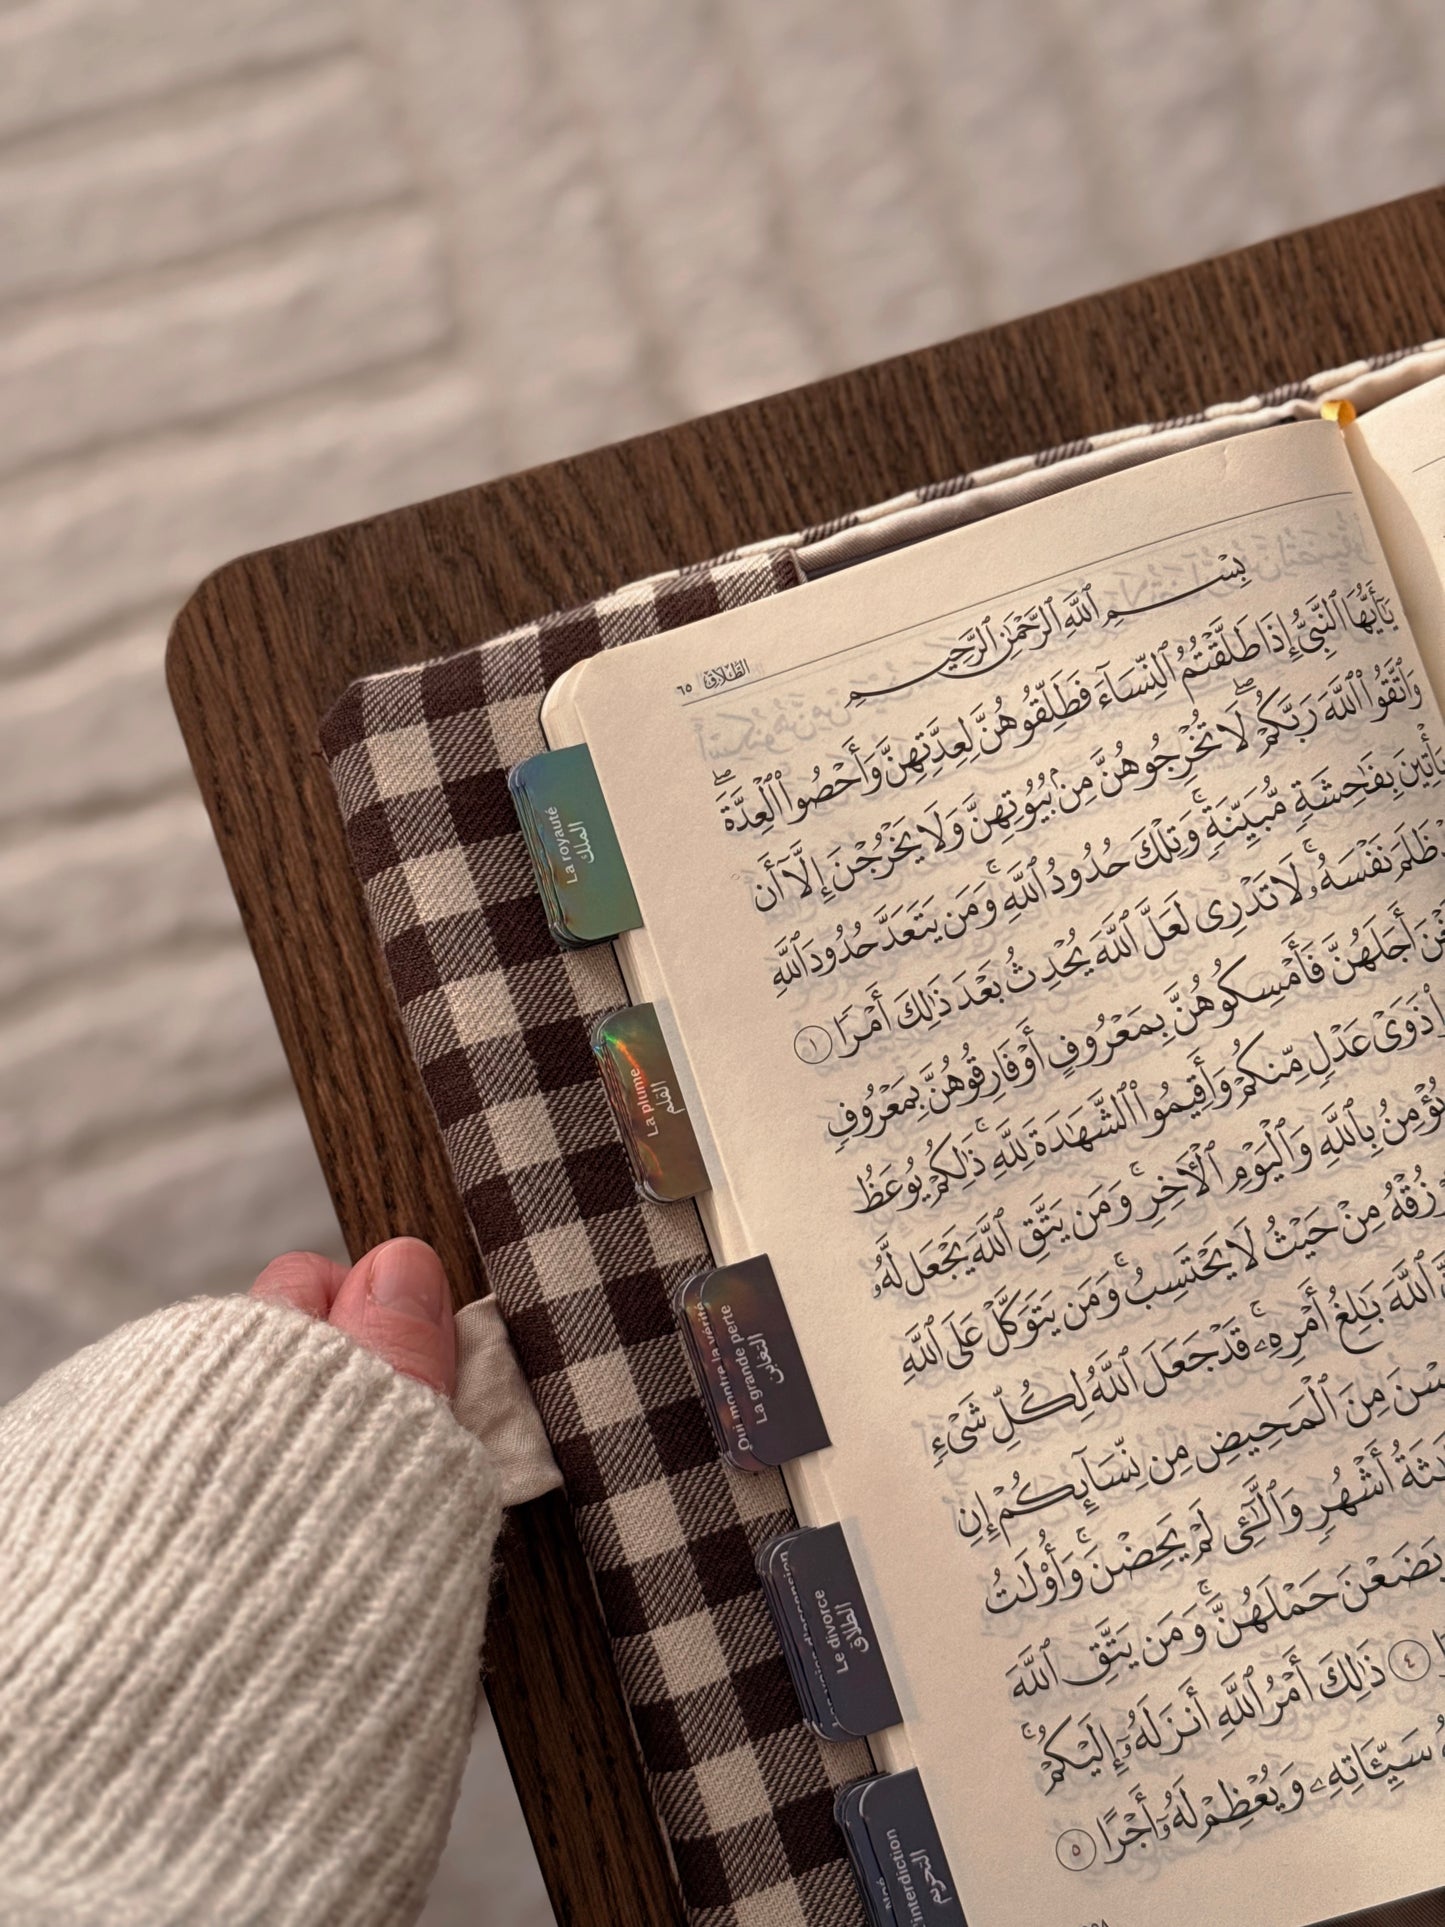 ٱلطَّلَاق ٦٥
بِسْمِ ٱللَّهِ ٱلرَّحْمَٰنِ ٱلرَّحِيمِ
يَٰٓأَيُّهَا ٱلنَّبِىُّ إِذَا طَلَّقْتُمُ ٱلنِّسَآءَ فَطَلِّقُوهُنَّ لِعِدَّتِهِنَّ وَأَحْصُوا۟ ٱلْعِدَّةَ ۖ
وَٱتَّقُوا۟ ٱللَّهَ رَبَّكُمْ ۖ لَا تُخْرِجُوهُنَّ مِنۢ بُيُوتِهِنَّ وَلَا يَخْرُجْنَ إِلَّآ أَن
يَأْتِينَ بِفَٰحِشَةٍ مُّبَيِّنَةٍ ۚ وَتِلْكَ حُدُودُ ٱللَّهِ ۚ وَمَن يَتَعَدَّ حُدُودَ ٱللَّهِ
ظَلَمَ نَفْسَهُۥ ۚ لَا تَدْرِى لَعَلَّ ٱللَّهَ يُحْدِثُ بَعْدَ ذَٰلِكَ أَمْرًا ١
أَجَلَهُنَّ فَأَمْسِكُوهُنَّ بِمَعْرُوفٍ أَوْ فَارِقُوهُنَّ بِمَعْرُوفٍ
ذَوَىْ عَدْلٍ مِّنكُمْ وَأَقِيمُوا۟ ٱلشَّهَٰدَةَ لِلَّهِ ۚ ذَٰلِكُمْ يُوعَظُ
يُؤْمِنُ بِٱللَّهِ وَٱلْيَوْمِ ٱلْءَاخِرِ ۚ وَمَن يَتَّقِ ٱللَّهَ يَجْعَل لَّهُۥ
رْزُقْهُ مِنْ حَيْثُ لَا يَحْتَسِبُ ۚ وَمَن يَتَوَكَّلْ عَلَى ٱللَّهِ
ٱللَّهَ بَٰلِغُ أَمْرِهِۦ ۚ قَدْ جَعَلَ ٱللَّهُ لِكُلِّ شَىْءٍ
سْنَ مِنَ ٱلْمَحِيضِ مِن نِّسَآئِكُمْ إِنِ
ثَةُ أَشْهُرٍ وَٱلَّٰٓـِٔى لَمْ يَحِضْنَ ۚ وَأُو۟لَٰتُ
يَضَعْنَ حَمْلَهُنَّ ۚ وَمَن يَتَّقِ ٱللَّهَ
٤ ذَٰلِكَ أَمْرُ ٱللَّهِ أَنزَلَهُۥٓ إِلَيْكُمْ ۚ
سَيِّـَٔاتِهِۦ وَيُعْظِمْ لَهُۥٓ أَجْرًا ٥
La royauté
الملك
La plume
القلم
Qui montra la vérité
La grande perte
التغابن
Le divorce
الطلاق
interdiction
التحريم